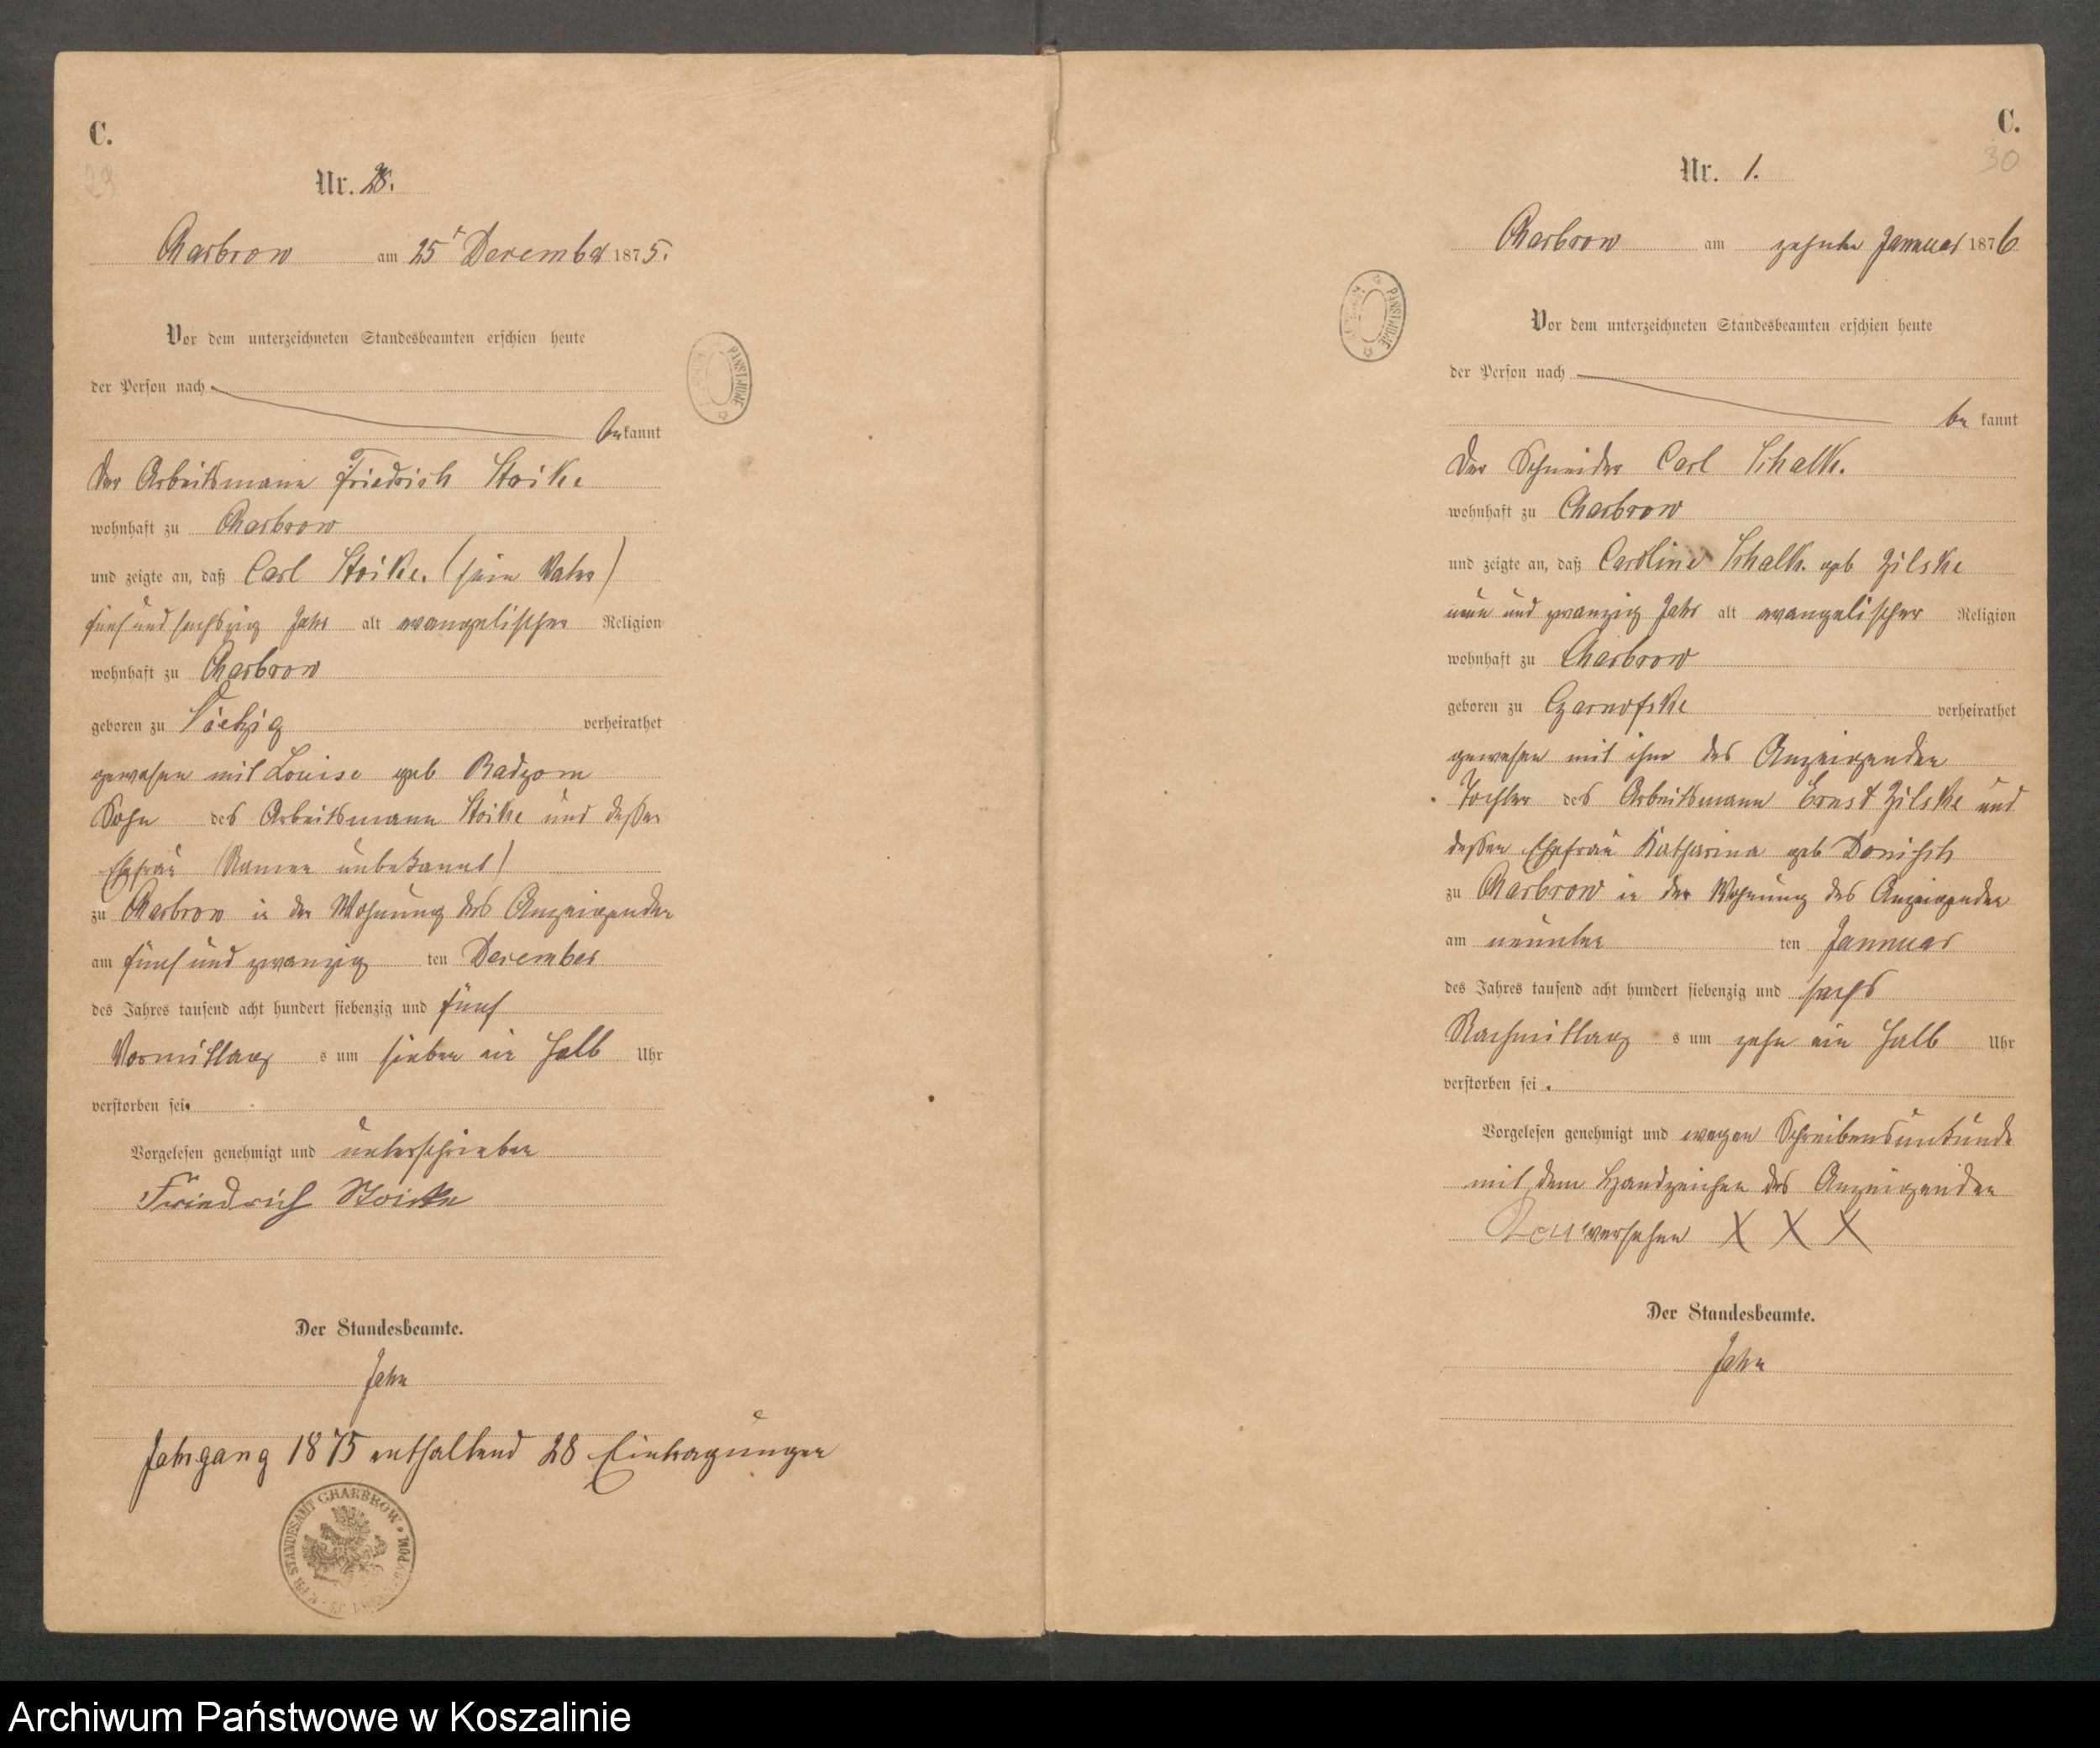 C.
29
Nr. 28.
Charbrow am 25t December 1875.
Vor dem unterzeichneten Standesbeamten erschien heute
der Person nach
bekannt
der Arbeitsmann Friedrich Stoike
wohnhaft zu Charbrow
und zeigte an, daß Carl Stoike. (sein Vater)
fünf und sechszig Jahr alt evangelischer Religion
wohnhaft zu Charbrow
geboren zu verheirathet
gewesen mit Louise geb Radzom
Sohn des Arbeitsmann Stoike und deßen
Ehefrau (Namen unbekannt)
zu Charbrow in der Wohnung des Anzeigenden
am fünf und zwanzig ten December
des Jahres tausend acht hundert siebenzig und fünf
Vormittag s um sieben ein halb Uhr
verstorben sei.
Vorgelesen genehmigt und unterschrieben
Friedrich Stoike
Der Standesbeamte.
Jahn
Jahrgang 1875 enthaltend 28 Eintragungen
STANDESAMT CHARBROW * POM.
PAŃSTWOWE
C.
30
Nr. 1.
Charbrow am zehnten Jannuar 1876
Vor dem unterzeichneten Standesbeamten erschien heute
der Person nach
be kannt
Der Schneider Carl Schalk.
wohnhaft zu Charbrow
und zeigte an, daß Caroline Schalk. geb Zilske
neun und zwanzig Jahr alt evangelischer Religion
wohnhaft zu Charbrow
geboren zu Czarnofske verheirathet
gewesen mit ihm des Anzeigenden
Tochter des Arbeitsmann Ernst Zilske und
deßen Ehefrau Katharina geb Donisch
zu Charbrow in der Wohnung des Anzeigenden
am neunten ten Jannuar
des Jahres tausend acht hundert siebenzig und sechs
Nachmittag s um zehn ein halb Uhr
verstorben sei.
Vorgelesen genehmigt und wegen Schreibensunkunde
mit dem Handzeichen des Anzeigenden
versehen X X X
Der Standesbeamte.
Jahn
PAŃSTWOWE
Archiwum Państwowe w Koszalinie